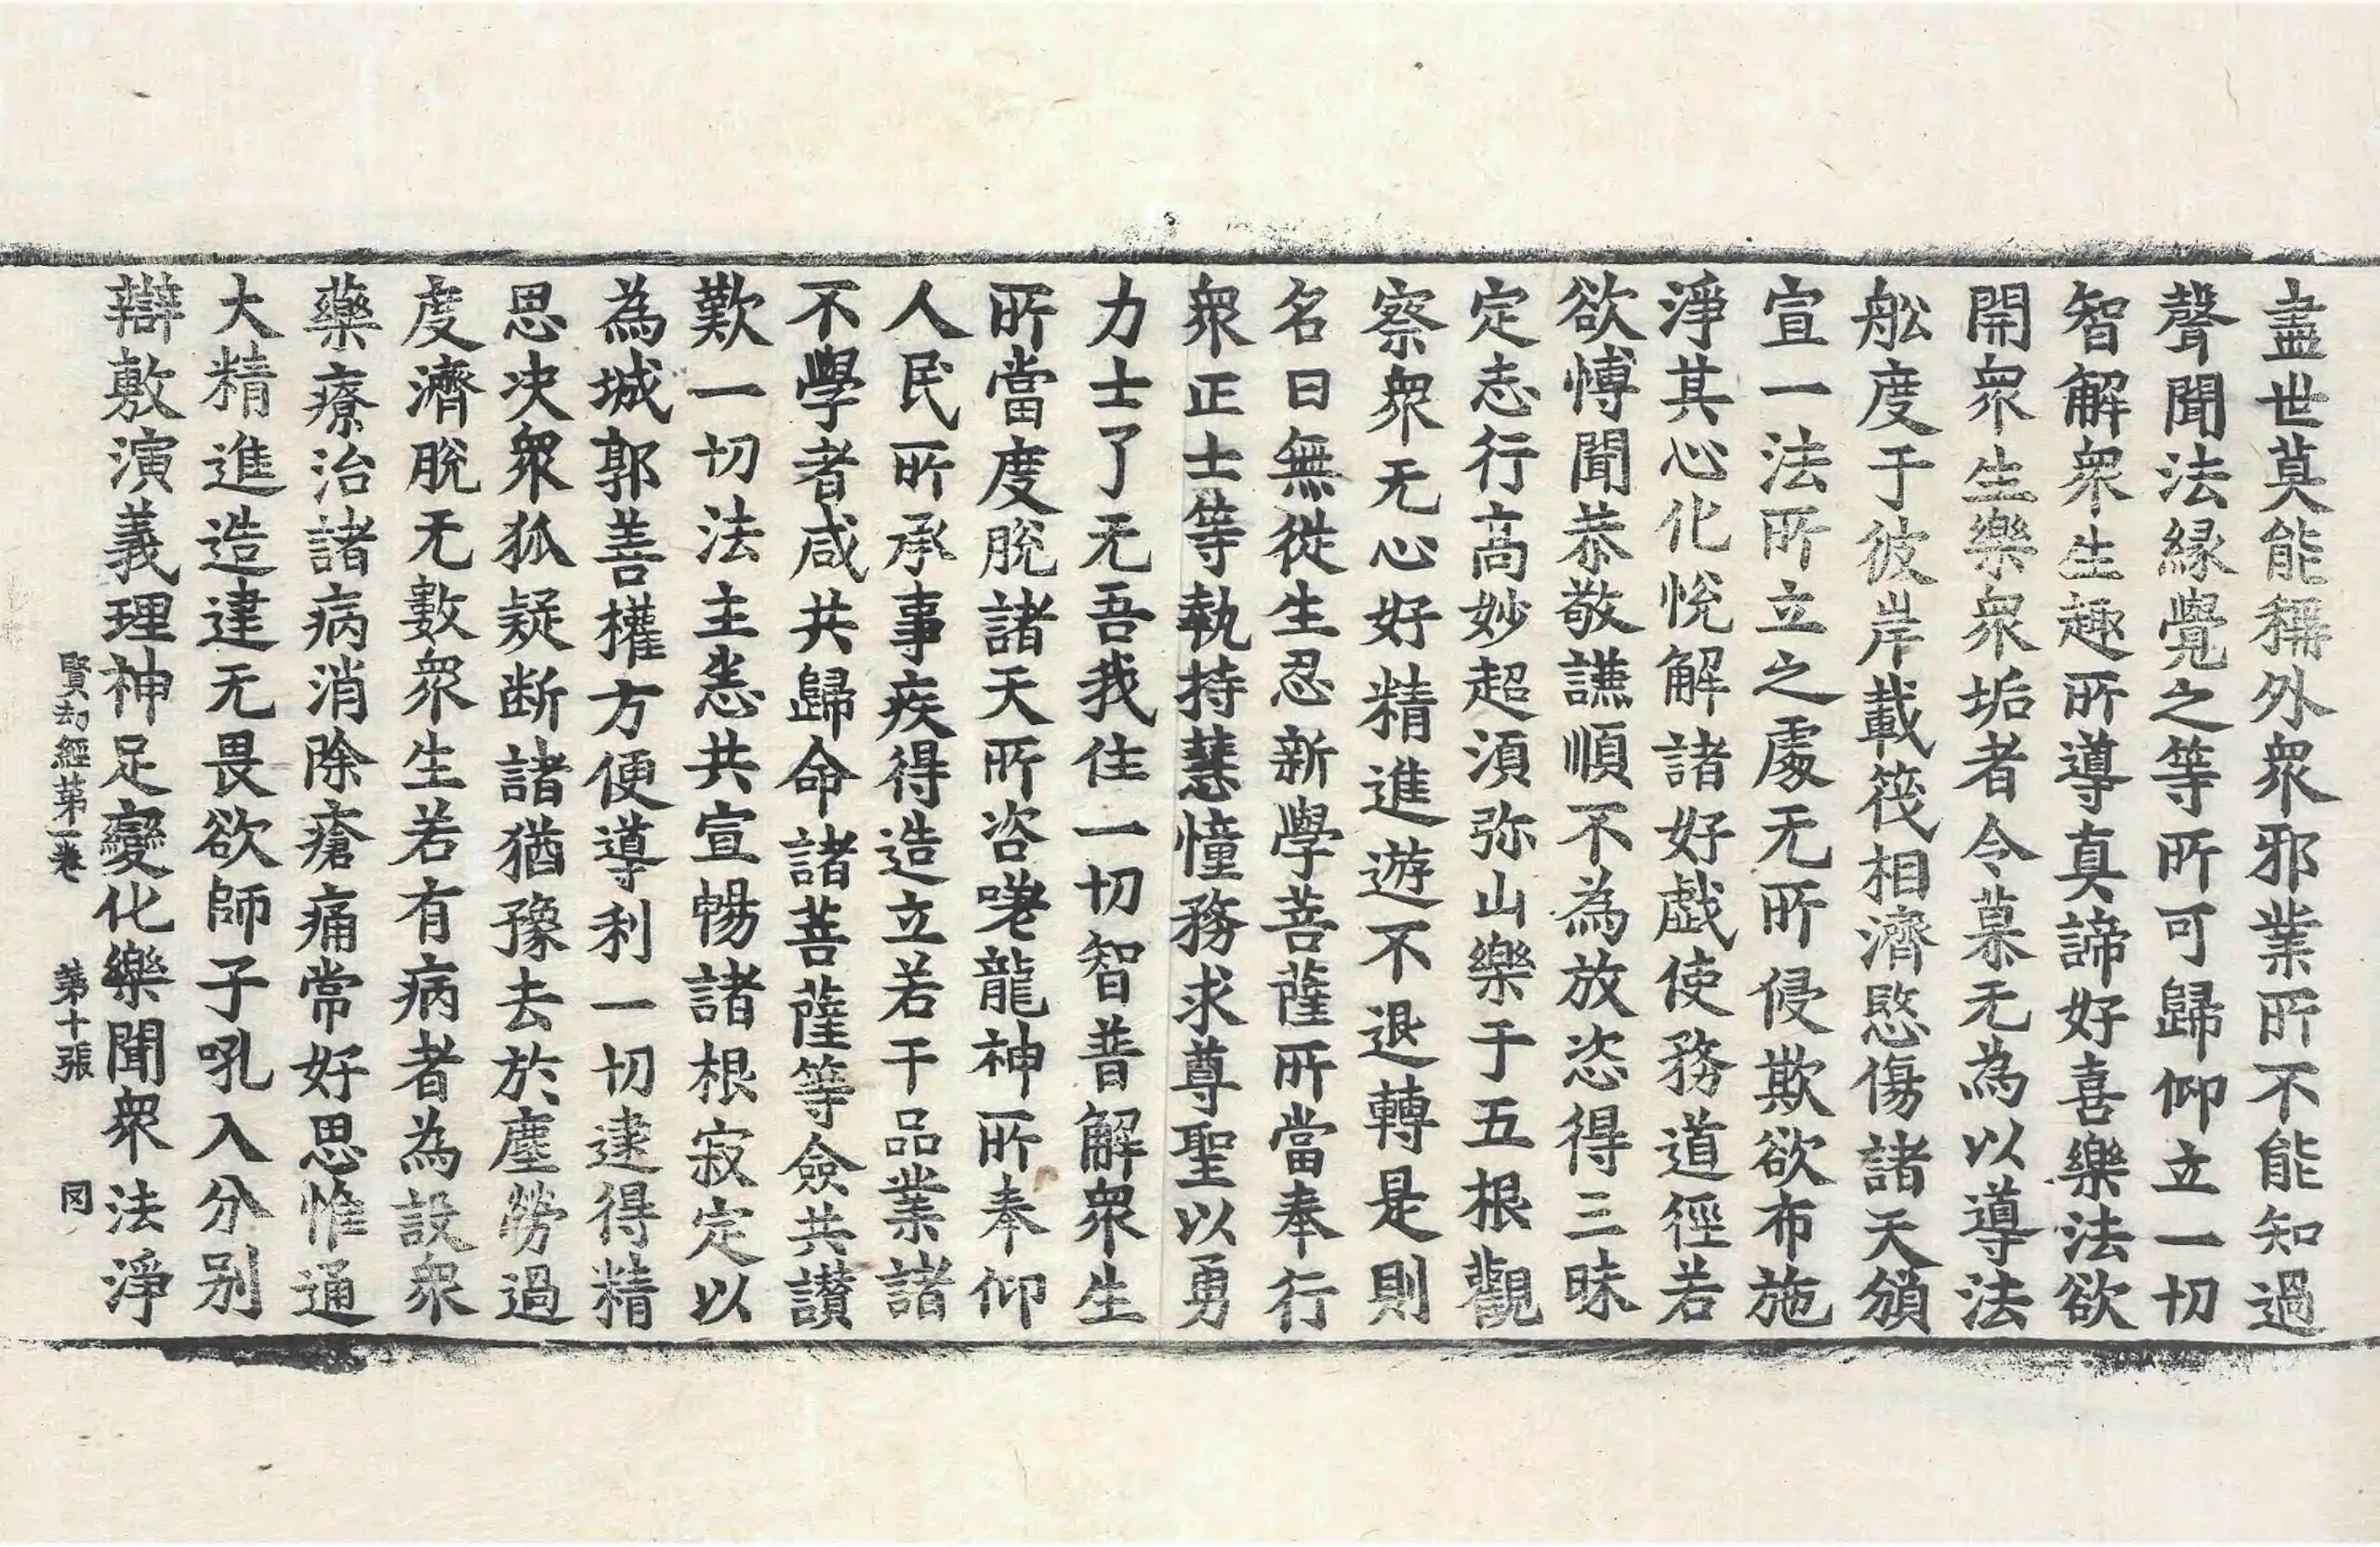 盡世莫能稱外衆邪業所不能知過
聲聞法緣覺之等所可歸仰立一切
智解衆生趣所導真諦好喜樂法欲
開衆生樂衆垢者令慕无為以導法
舩度于彼岸載筏相濟愍傷諸天頒
宣一法所立之處无所侵欺欲布施
淨其心化悅解諸好戲使務道徑若
欲愽聞恭敬謙順不為放恣得三昧
定志行高妙超湏弥山樂于五根觀
察衆无心好精進遊不退轉是則
名曰無從生忍新學菩薩所當奉行
衆正士等執持慧憧務求尊聖以勇
力士了无吾我住一切智普解衆生
所當度脫諸天所咨嗟龍神所奉仰
人民所承事疾得造立若干品業諸
不學者咸共歸命諸菩薩等僉共讃
歎一切法主恙共宣暢諸根寂定以
為城郭善權方便導利一切逮得精
思决衆狐疑断諸猶豫去於塵勞過
度濟脫无數衆生若有病者為設衆
藥療治諸病消除瘡痛常好思惟通
大精進造建无畏欲師子吼入分别
辯敷演義理神足變化樂聞衆法淨
賢劫經第一卷 第十張 冈